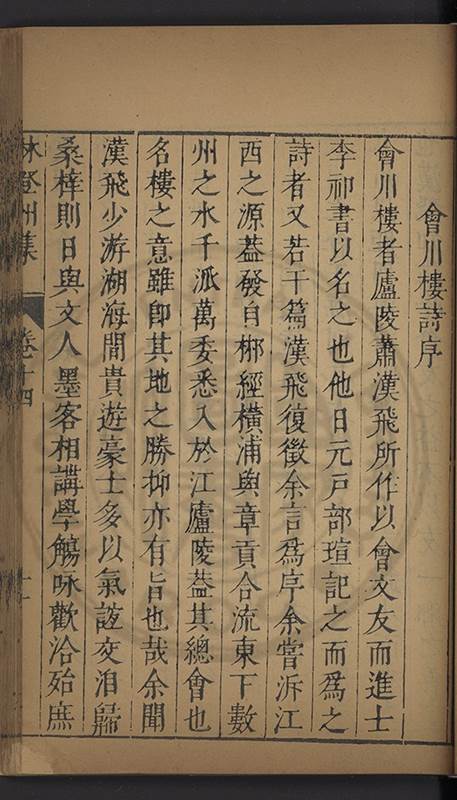 會川樓詩序
會川樓者廬陵蕭漢飛所作以會文友而進士
李祁書以名之也他日元戸部瑄記之而爲之
詩者又若干篇漢飛復徵余言爲序余嘗泝江
西之源葢發自郴經橫浦與章貢合流東下數
州之水千派萬委悉入於江廬陵葢其總會也
名樓之意雖卽其地之勝抑亦有旨也哉余聞
漢飛少游湖海間貴遊豪士多以氣誼交洎歸
桑梓則日與文人墨客相講學觴咏歡洽殆庶
林登州集 卷十四